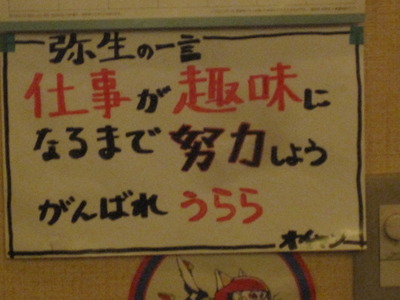 弥生の一言
仕事が趣味に
なるまで努力しよう
がんばれうらら